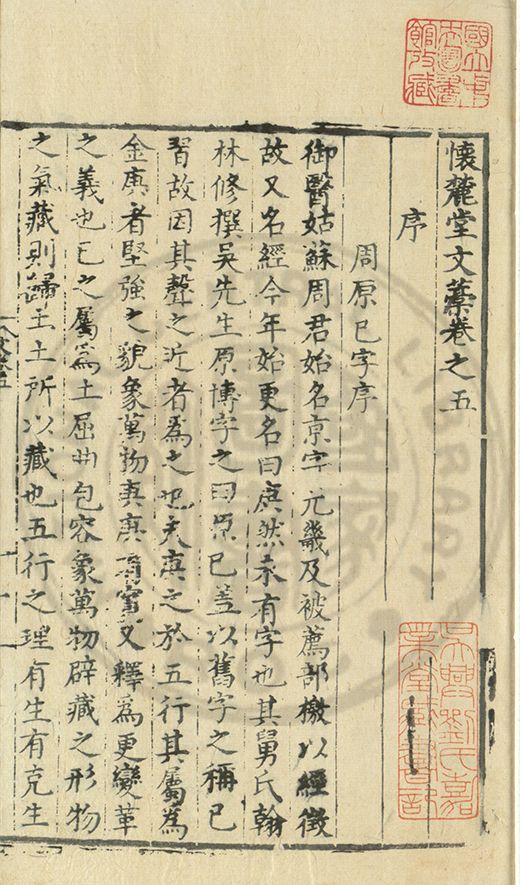 國立中
央圖書
館收藏
懷麓堂文藁卷之五
序
周原巳字序
御醫姑蘇周君始名京字元幾及被薦部檄以經徵
故又名經今年始更名曰庚然未有字也其舅氏翰
林修撰吳先生原博字之曰原巳盖以舊字之稱巳
習故因其聲之近者為之也夫庚之於五行其屬為
金庚者堅強之貌象萬物庚庚有實又釋為更變革
之義也巳之屬為土屈曲包容象萬物辟藏之形物
之氣藏則歸土土所以藏也五行之理有生有克生
吳興劉氏嘉
業堂藏書記